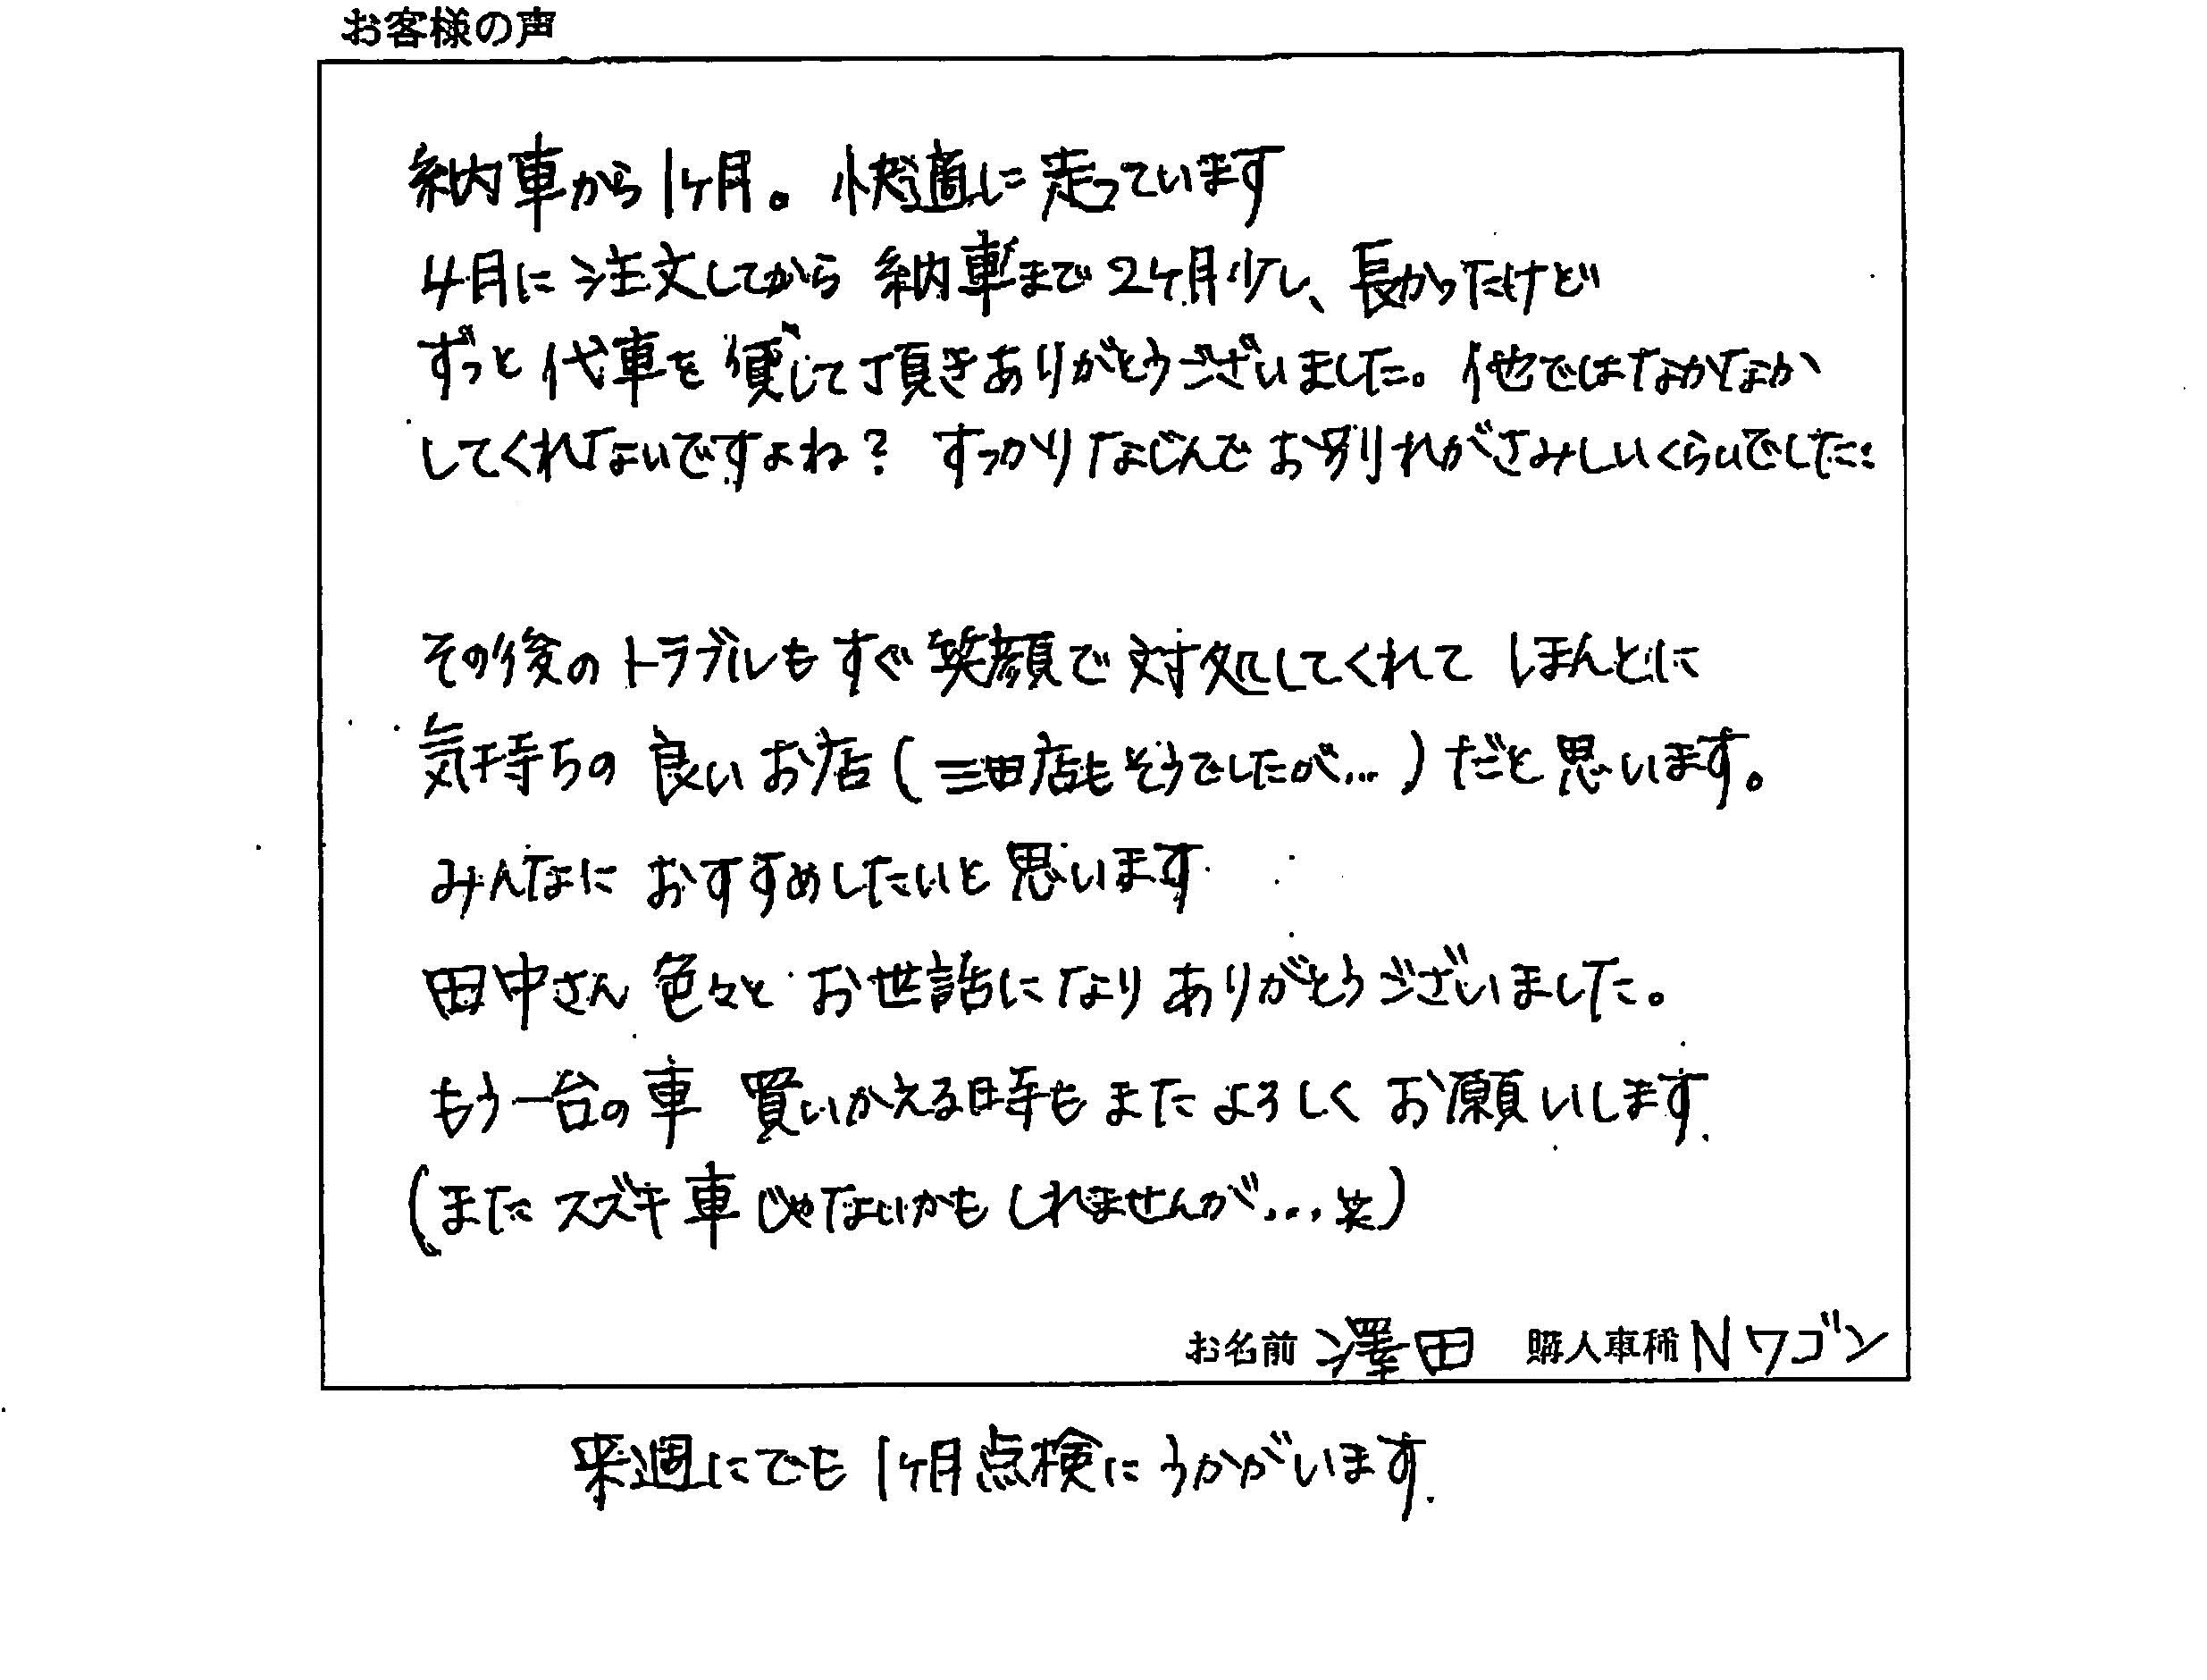 お客様の声
納車から1ヶ月。快適に走っています
4月に注文してから 納車まで2ヶ月少し、長かったけど
ずっと代車を貸して頂きありがとうございました。他ではなかなか
してくれないですよね？ すっかりなじんでお別れがさみしいくらいでした…
その後のトラブルもすぐ笑顔で対処してくれて ほんとに
気持ちの良いお店(三田店もそうでしたが…)だと思います。
みんなに おすすめしたいと思います
田中さん 色々と お世話になり ありがとうございました。
もう一台の車 買いかえる時も またよろしく お願いします.
(またスズキ車じゃないかもしれませんが…笑)
お名前 澤田 購入車種 Nワゴン
来週にでも 1ヶ月点検に うかがいます.